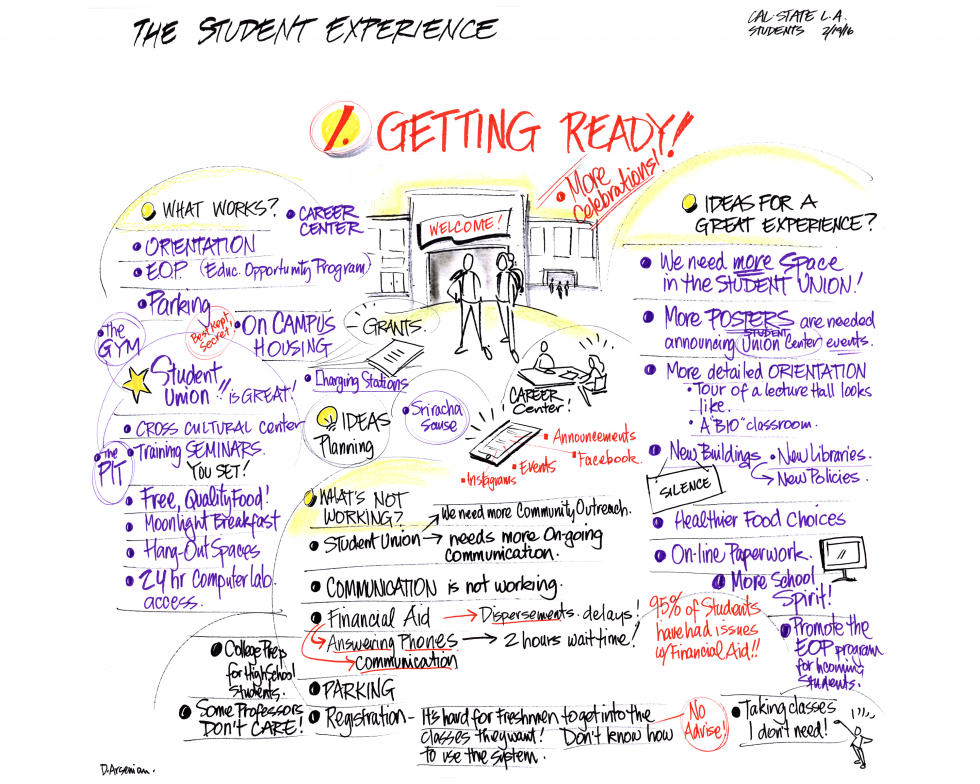 THE STUDENT EXPERIENCE
CAL STATE L.A.
STUDENTS 2/19/16
1. GETTING READY!
• More
Celebrations!!
WHAT WORKS?
• CAREER
CENTER
• ORIENTATION
• EOP (Educ. Opportunity Program)
• Parking
• The
GYM
Best kept
Secret
• ON CAMPUS
HOUSING
- GRANTS.
Student
Union!! is GREAT!
• Charging Stations
• CROSS CULTURAL Center
• The
PIT
• Training SEMINARS.
YOU SET!
• Free, Quality Food!
• Moonlight Breakfast
• Hang-Out Spaces
• 24 hr Computer Lab
access.
WELCOME!
IDEAS
Planning
• Sriracha
Sause
CAREER
Center!
• Announcements
• Facebook.
• Events
• Instagrams
WHAT'S NOT
WORKING?
We need more Community Outreach.
• Student Union → needs more On-going
communication.
• COMMUNICATION is not working.
• Financial Aid → Dispersements. delays!
Answering Phones → 2 hours wait time!
Communication
95% of Students
have had issues
w/Financial Aid!!
• PARKING
• Registration - It's hard for Freshmen to get into the
classes they want! Don't know how
to use the system.
No
Advise!
• College Prep
for High School
Students.
• Some Professors
DON'T CARE!
• Taking classes
I don't need!
IDEAS FOR A
GREAT EXPERIENCE?
• We need more Space
in the STUDENT UNION!
• More POSTERS are needed
announcing STUDENT Union Center events.
• More detailed ORIENTATION
• Tour of a lecture Hall looks
like.
• A "BIO" classroom.
• New Buildings • New Libraries.
→ New Policies.
SILENCE
• Healthier Food Choices
• On-line Paperwork.
• More School
Spirit!
• Promote the
EOP program
for Incoming
Students.
D. Arsenian.